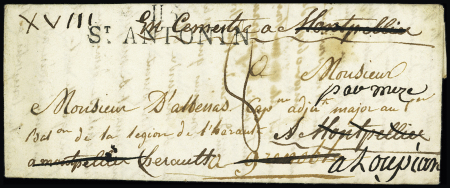 XVIII En Cemestre a Montpellier
11
ST ANTONIN
Monsieur
par meze
Monsieur D'albenas Capne adjut major au 1er
Baton de la legion de l'herault A Montpellier
a montpellier herault a grenoble a Loupian